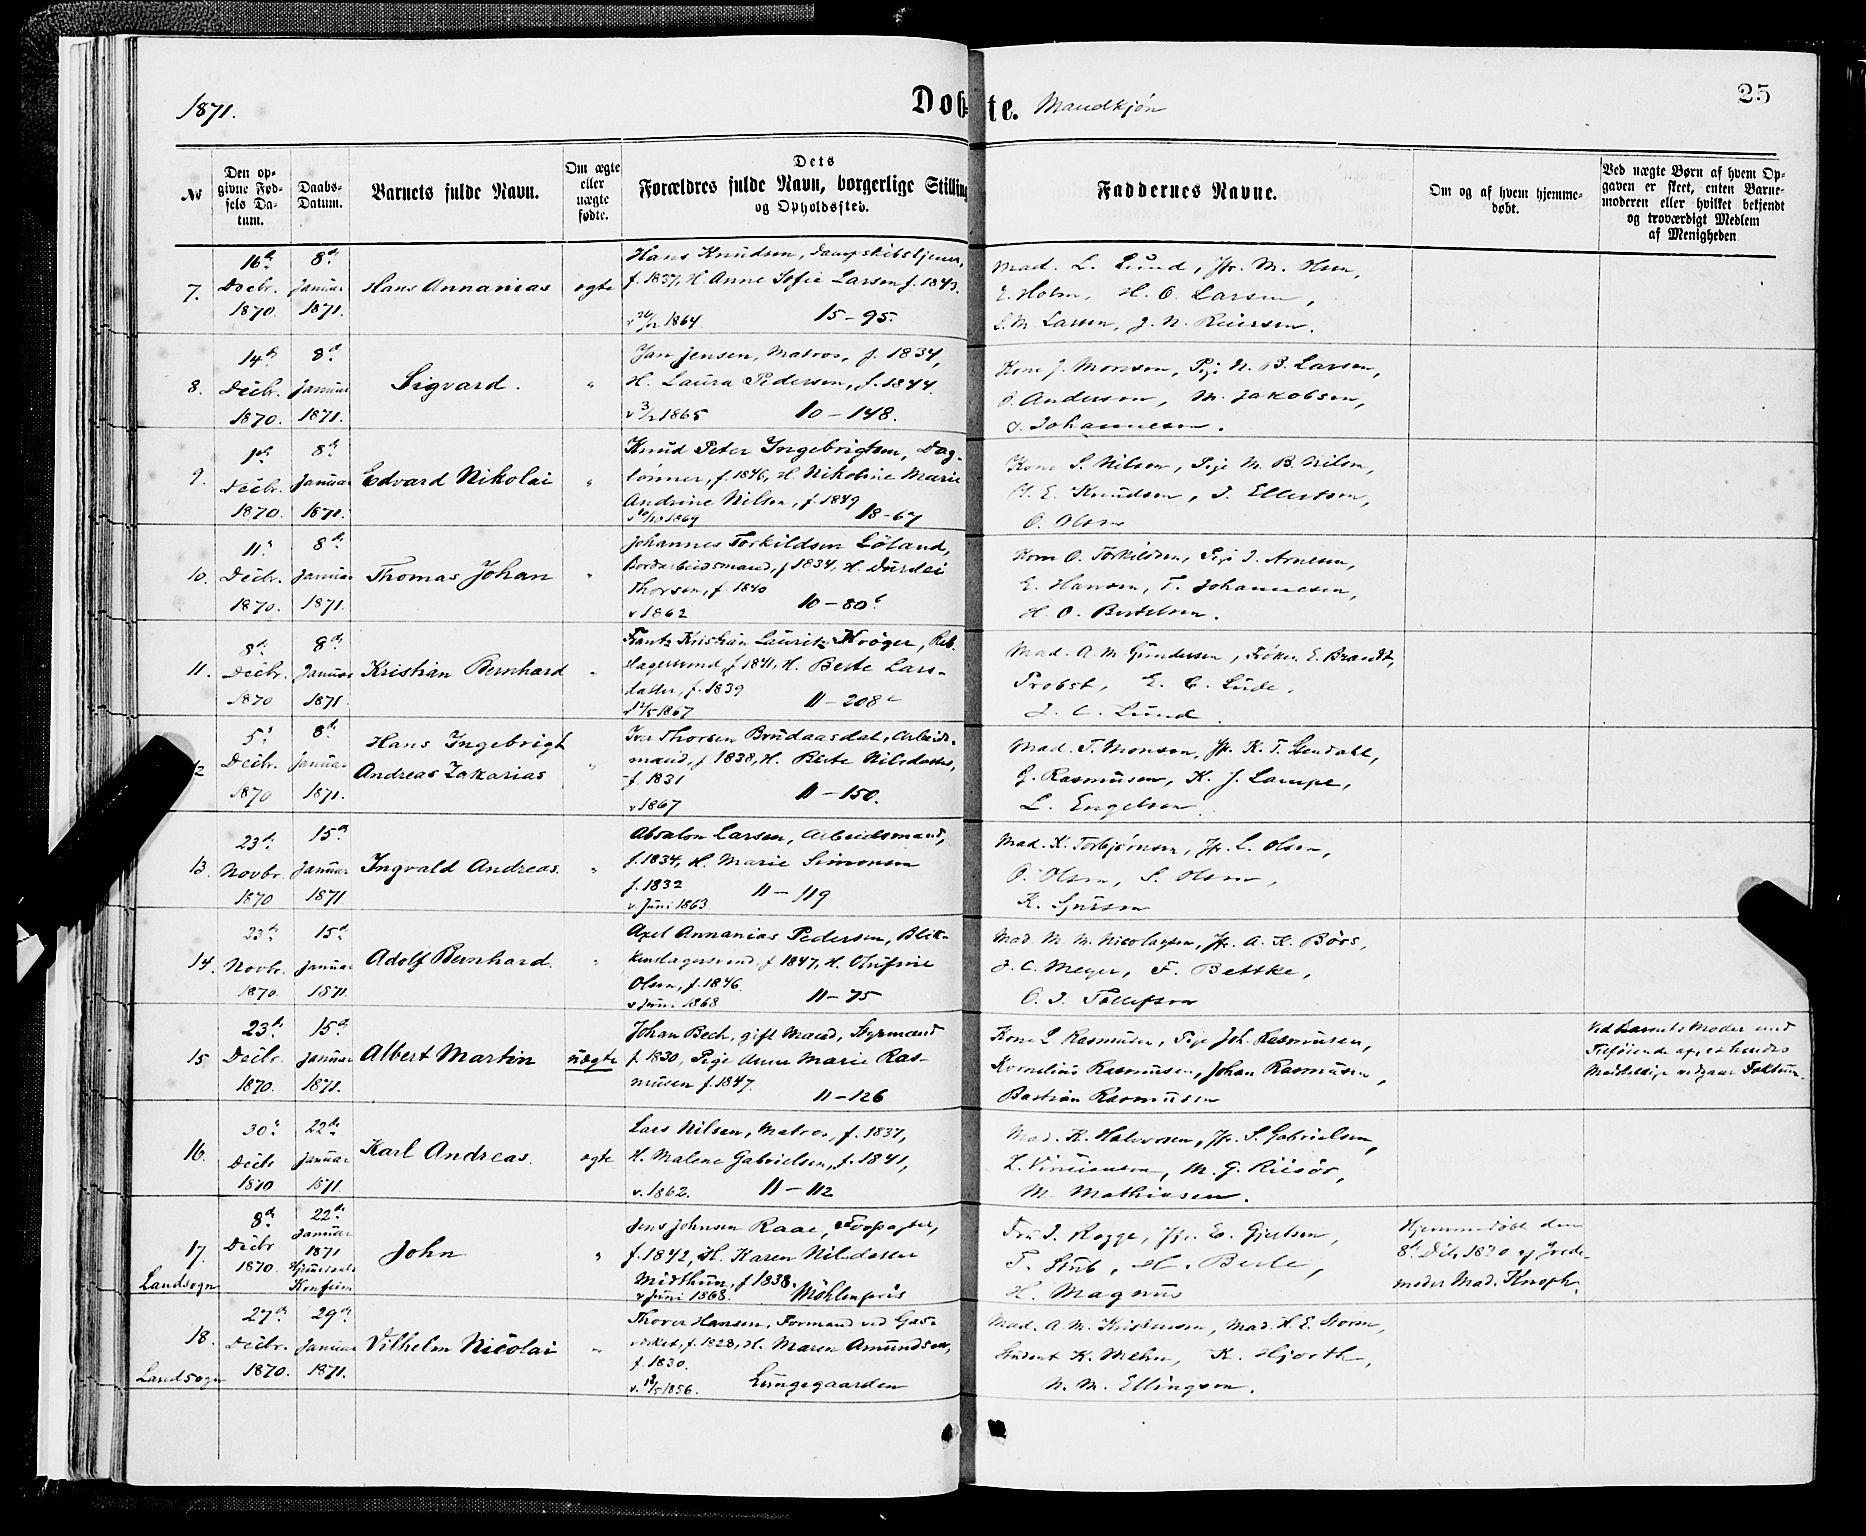 1871.
Døbte. Mandkjøn
25
No
Den opgivne Fødsels Datum.
Daabs-Datum.
Barnets fulde Navn.
Om ægte eller uægte fødte.
Dets Forældres fulde Navn, borgerlige Stilling og Opholdssted.
Faddernes Navne.
Om og af hvem hjemmedøbt.
Ved uægte Børn af hvem Opgaven er skeet, enten Barnemoderen eller hvilket bekjendt og troværdigt Medlem af Menigheden
7.
16d Decbr. 1870.
8d Januar 1871.
Hans Annanias
ægte
Hans Knudsen, Dampskibstjener,
f. 1837, H. Anne Sofie Larsen f. 1843.
1864. 15-95.
Mad. L. Lund, Jfr. M. Olsen,
E. Holm, H. O. Larsen,
L. M. Larsen, J. N. Reiersen.
8.
14d Decbr. 1870.
8d Januar 1871.
Sigvard.
"
Jan Jensen, Matros, f. 1834,
H. Laura Pedersen, f. 1844.
1865 10-148.
Kone J. Monsen, Pige N. B. Larsen,
Andersen, M. Jakobsen,
Johannesen.
9.
1d Decbr. 1870.
8d Januar 1871.
Edvard Nikolai
"
Knud Peter Ingebrigtsen, Dag-
lønner, f. 1846, H. Nikoline Marie
Andrine Nilsen, f. 1849
1869 18-67
Kone S. Nilsen, Pige M. B. Nilsen,
E. Knudsen, I. Ellertsen,
O. Olsen
10.
11d Decbr. 1870.
8d Januar 1871.
Thomas Johan
"
Johannes Torkildsen Løland,
f 1834, H. Durdei
Thorsen, f. 1840
v 1862 10-80
Kone O. Torkildsen, Pige I. Arnesen,
E. Hansen, T. Johannesen,
H. O. Bertelsen.
11.
8d Decbr. 1870
8d Januar 1871.
Kristian Bernhard
"
Frantz Kristian Lauritz Krøger, Reb-
slagersvend, f. 1841, H. Berte Lars-
datter, f. 1839
1867 11-208
Mad. A. M. Gundersen, Frøken E. Brandt,
Probst, E. C. Lude,
J. C. Lund.
5d Decbr. 1870
8d Januar 1871.
Hans Ingebrigt
Andreas Zakarias
"
Iver Thorsen Brudaasdal, Arbeids-
mand, f 1838, H. Berte Nilsdatter,
f. 1831
v 1867 11-150.
Mad. T. Monsen, Jfr. K. T. Stendahl,
G. Rasmusen, K. J. Lampe,
L. Engelsen.
13.
23d Novbr. 1870
15d Januar 1871
Ingvald Andreas.
"
Absalon Larsen, Arbeidsmand,
f. 1834, H. Marie Simonsen
f. 1832
v Juni 1863. 11-119
Mad. K. Torbjørnsen, Jfr. L. Olsen,
O. Olsen, S. Olsen,
K. Sjursen
14.
23d Novbr. 1870.
15d Januar 1871
Adolf Bernhard.
"
Axel Annanias Pedersen, Blik-
kenslagersvend, f 1847, H. Olufine
Olsen, f. 1846.
v Juni 1868 11-75
Mad. M. M. Nicolaysen, Jfr. A. K. Børs,
J. C. Meyer, F. Bettke,
O. I. Tollefsen
15
23d Decbr. 1870.
15d Januar 1871.
Albert Martin
uægte
Johan Bech, gift Mand, Styrmand
f. 1830, Pige Anne Marie Ras-
musen f. 1847.
11-126
Kone L Rasmusen, Pige Joh. Rasmusen,
Kornelius Rasmusen, Johan Rasmusen,
Bastian Rasmusen
Ved Barnets Moder med
Tilføiende af, at hendes
Medskyldige vedgaar Faktum.
16.
30d Decbr 1870
22d Januar 1871.
Karl Andreas.
ægte
Lars Nilsen, Matros, f. 1837,
H. Malene Gabrielsen, f. 1841,
v. 1862. 11-112
Mad. K. Halvorsen, Jfr. S. Gabrielsen,
M. G. Riisør,
M. Mathiasen.
17.
Landsogn
8d Decbr 1870.
22d Januar 1871
John
"
Jens Johnsen Raae, Forpagter,
f. 1842, H. Karen Nilsdatter
Midthun, f 1838.
v Juni 1868. Møhlenpris
Fru I. Rogge, Jfr. E. Gjertsen,
T. Stub, H. Berle,
H. Magnus
Hjemmedøbt den
8d Dcb. 1870 af Jorde-
moder Mad. Knoph.
18.
Landsogn
27d Decbr. 1870.
29d Januar 1871.
Vilhelm Nicolai
"
Thorer Hansen, Formand ved Gas-
værket, f. 1828, H. Maren Amundsen,
f. 1830.
1856. Lungegaarden
Mad. A. M. Kristensen, Mad. H. E. Storm,
Student K. Mehn, K. Hjorth,
N. M. Ellingsen.